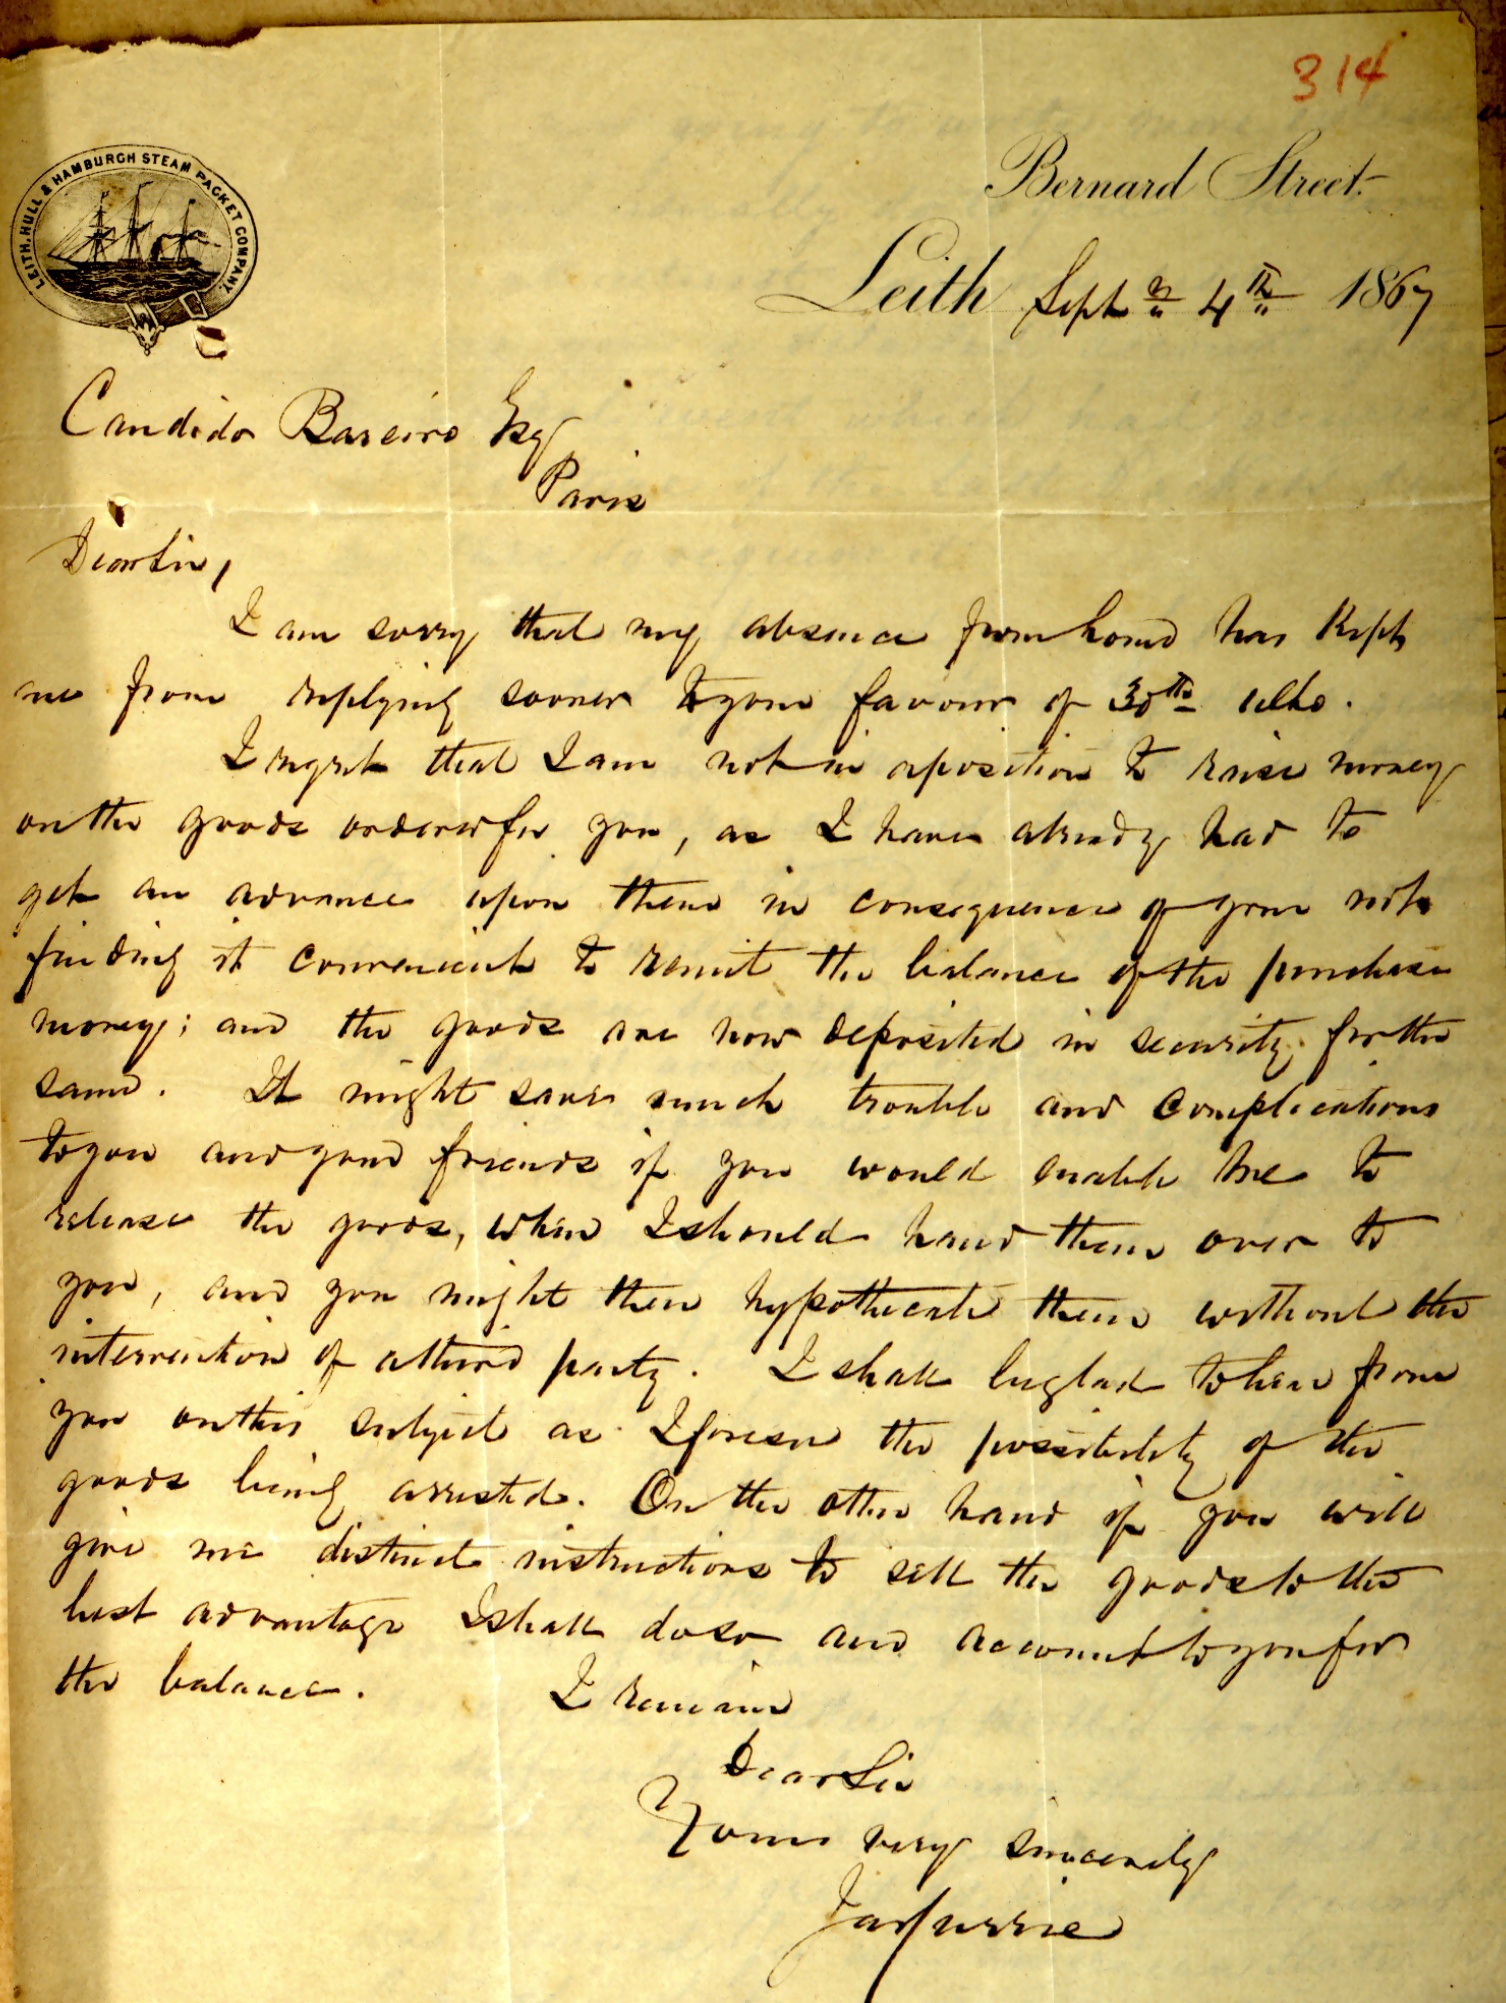 314
LEITH, HULL & HAMBURGH STEAM PACKET COMPANY.
Bernard Street.
Leith Septr 4th 1867
Candido Bareiro Esq
Paris
Dear Sir,
I am sorry that my absence from home has kept
me from replying sooner to your favour of 30th ulto.
I regret that I am not in a position to raise money
on the goods ordered for you, as I have already had to
get an advance upon them in consequence of your not
finding it convenient to remit the balance of the purchase
money; and the goods are now deposited in security for the
same. It might save much trouble and complications
to you and your friends if you would enable me to
release the goods, when I should hand them over to
you, and you might then hypothecate them without the
intervention of a third party. I shall be glad to hear from
you on this subject as I foresee the possibility of the
goods being arrested. On the other hand if you will
give me distinct instructions to sell the goods to the
best advantage I shall do so and account to you for
the balance.
I remain
Dear Sir
Yours very sincerely
Jas Currie